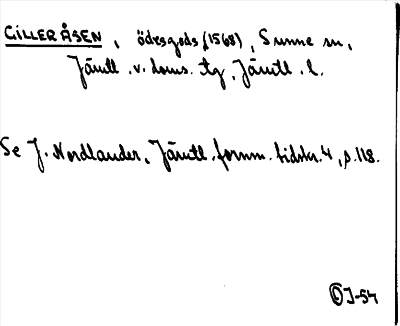 GILLERÅSEN, ödesgods (1568), Sunne sn,
Jämtl. v. doms. tg, Jämtl. l.
Se J. Nordlander, Jämtl. fornm. tidskr. 4, s. 118.
ÖJ-54